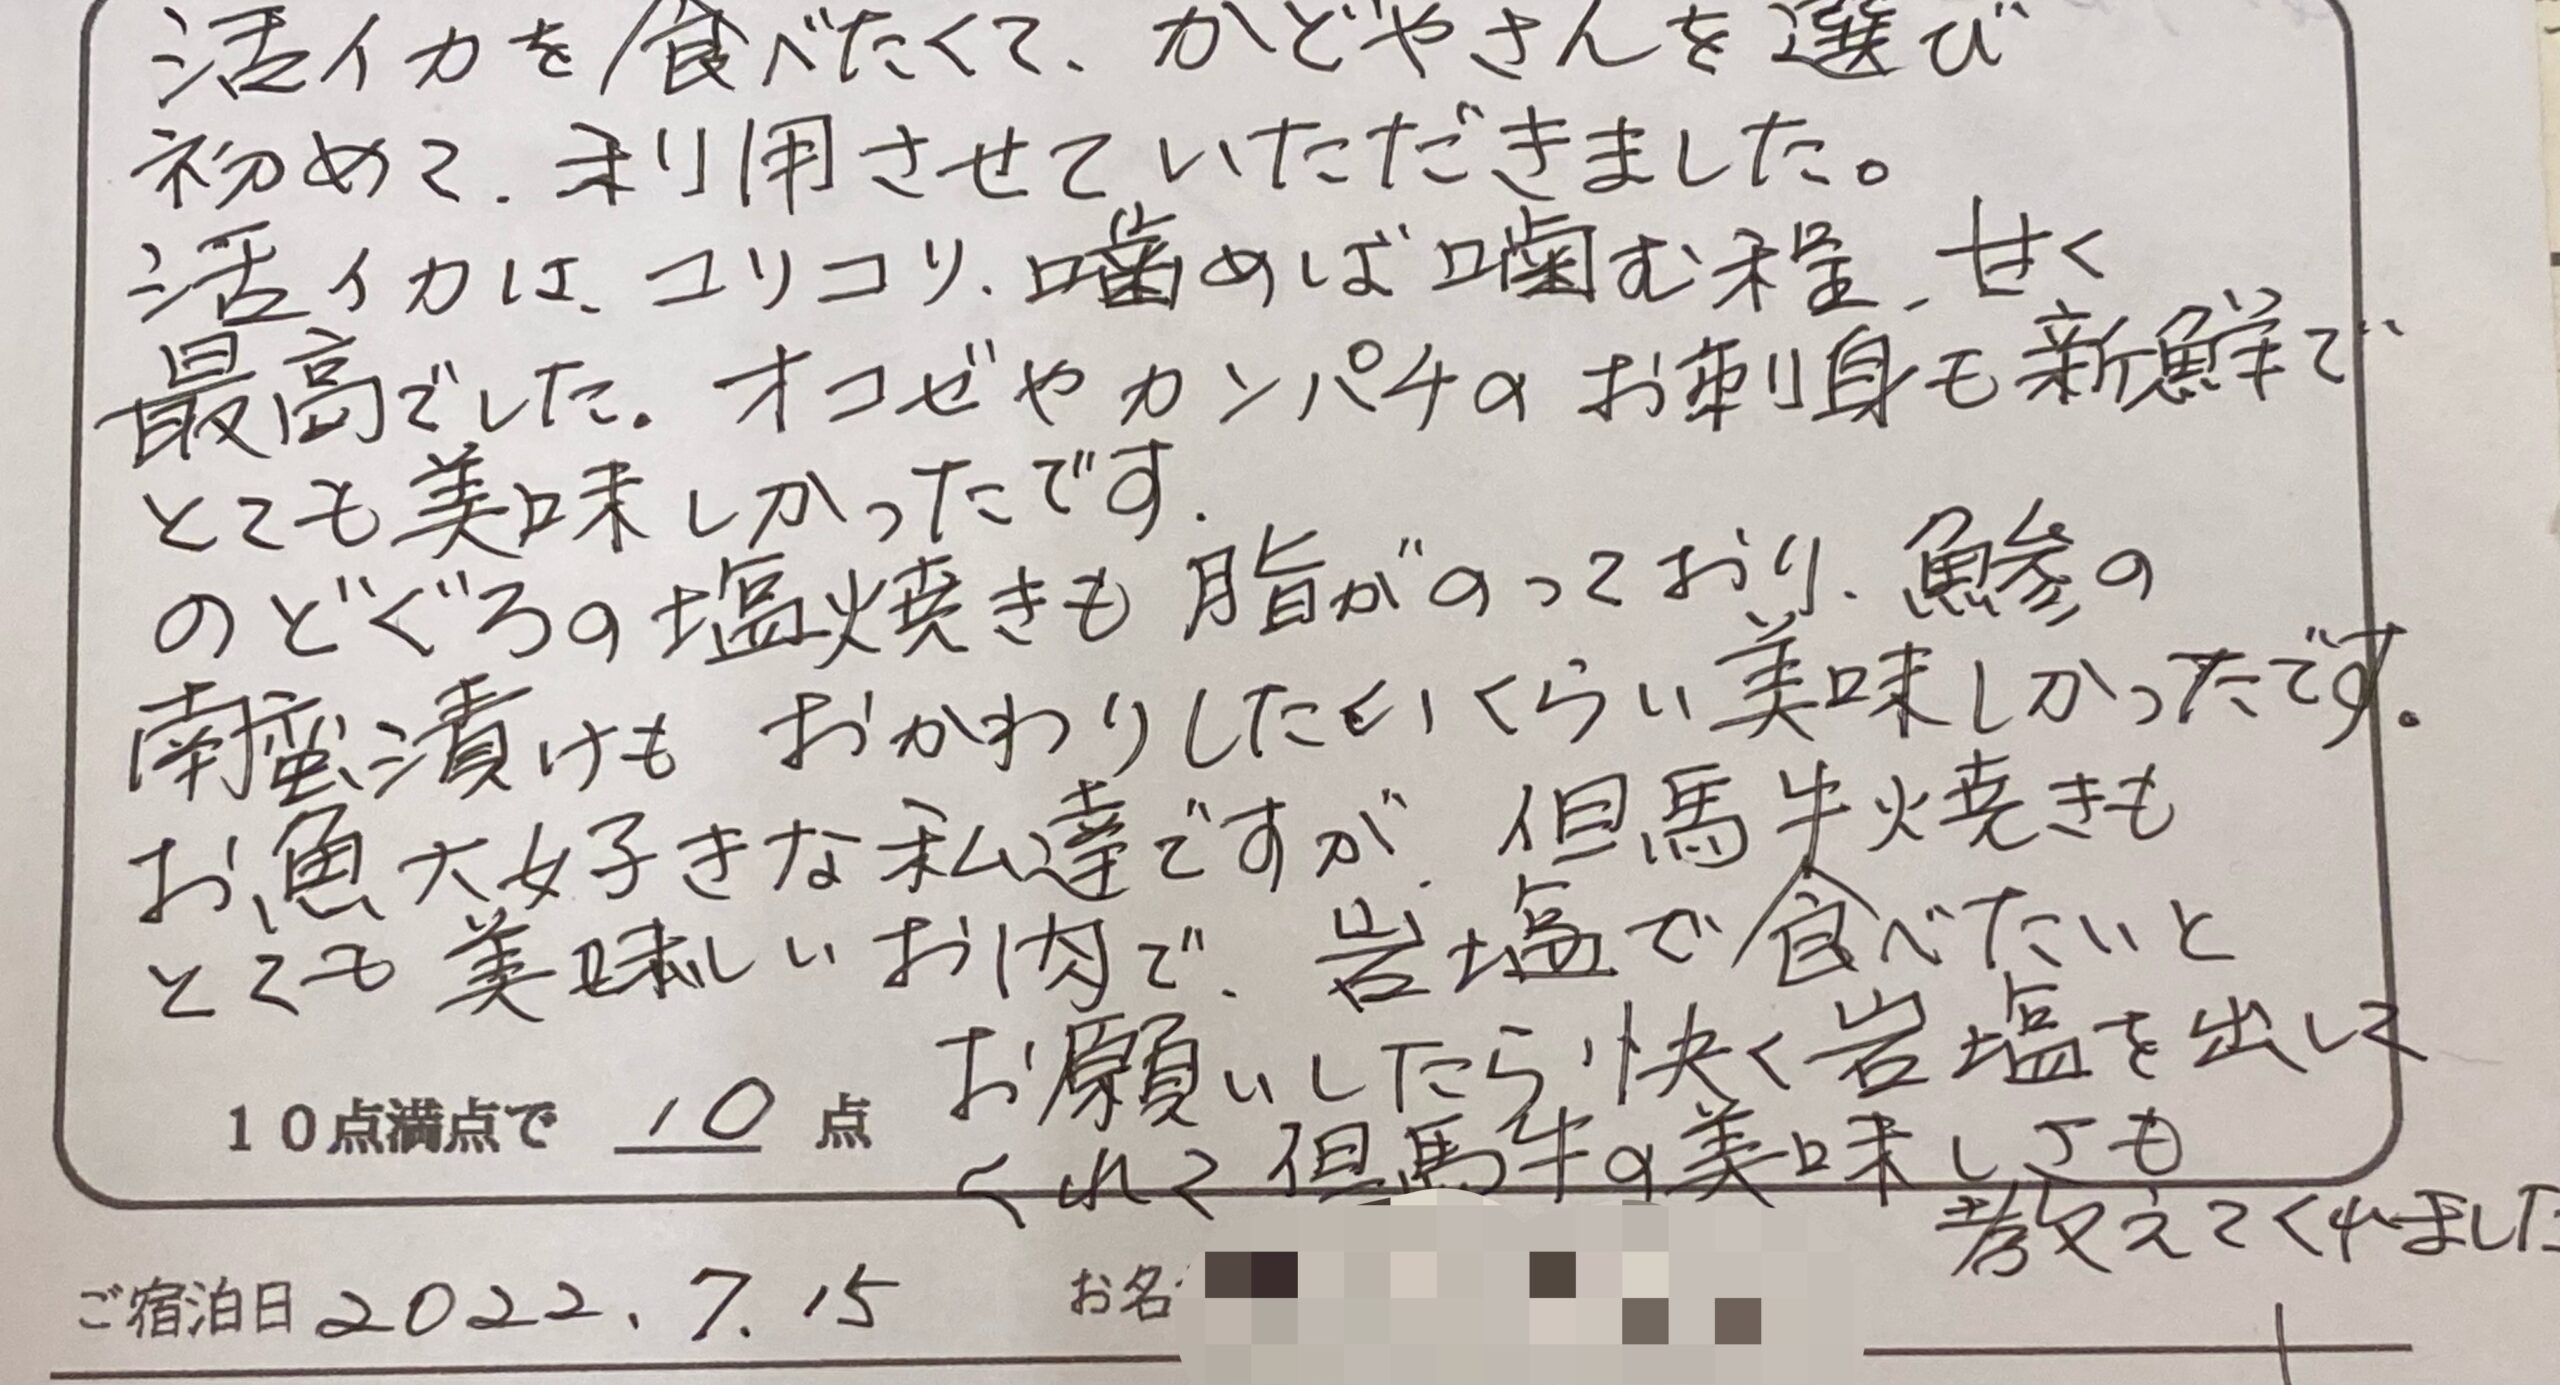 活イカを食べたくて、かどやさんを選び
初めて、利用させていただきました。
活イカは、コリコリ、噛めば噛む程、甘く
最高でした。オコゼやカンパチのお刺身も新鮮で
とても美味しかったです。
のどぐろの塩焼きも脂がのっており、鯵の
南蛮漬けもおかわりしたいくらい美味しかったです。
お魚大好きな私達ですが、但馬牛焼きも
とても美味しいお肉で、岩塩で食べたいと
お願いしたら快く岩塩を出して
くれて但馬牛の美味しさも
教えてくれました
10点満点で 10 点
ご宿泊日 2022.7.15 お名